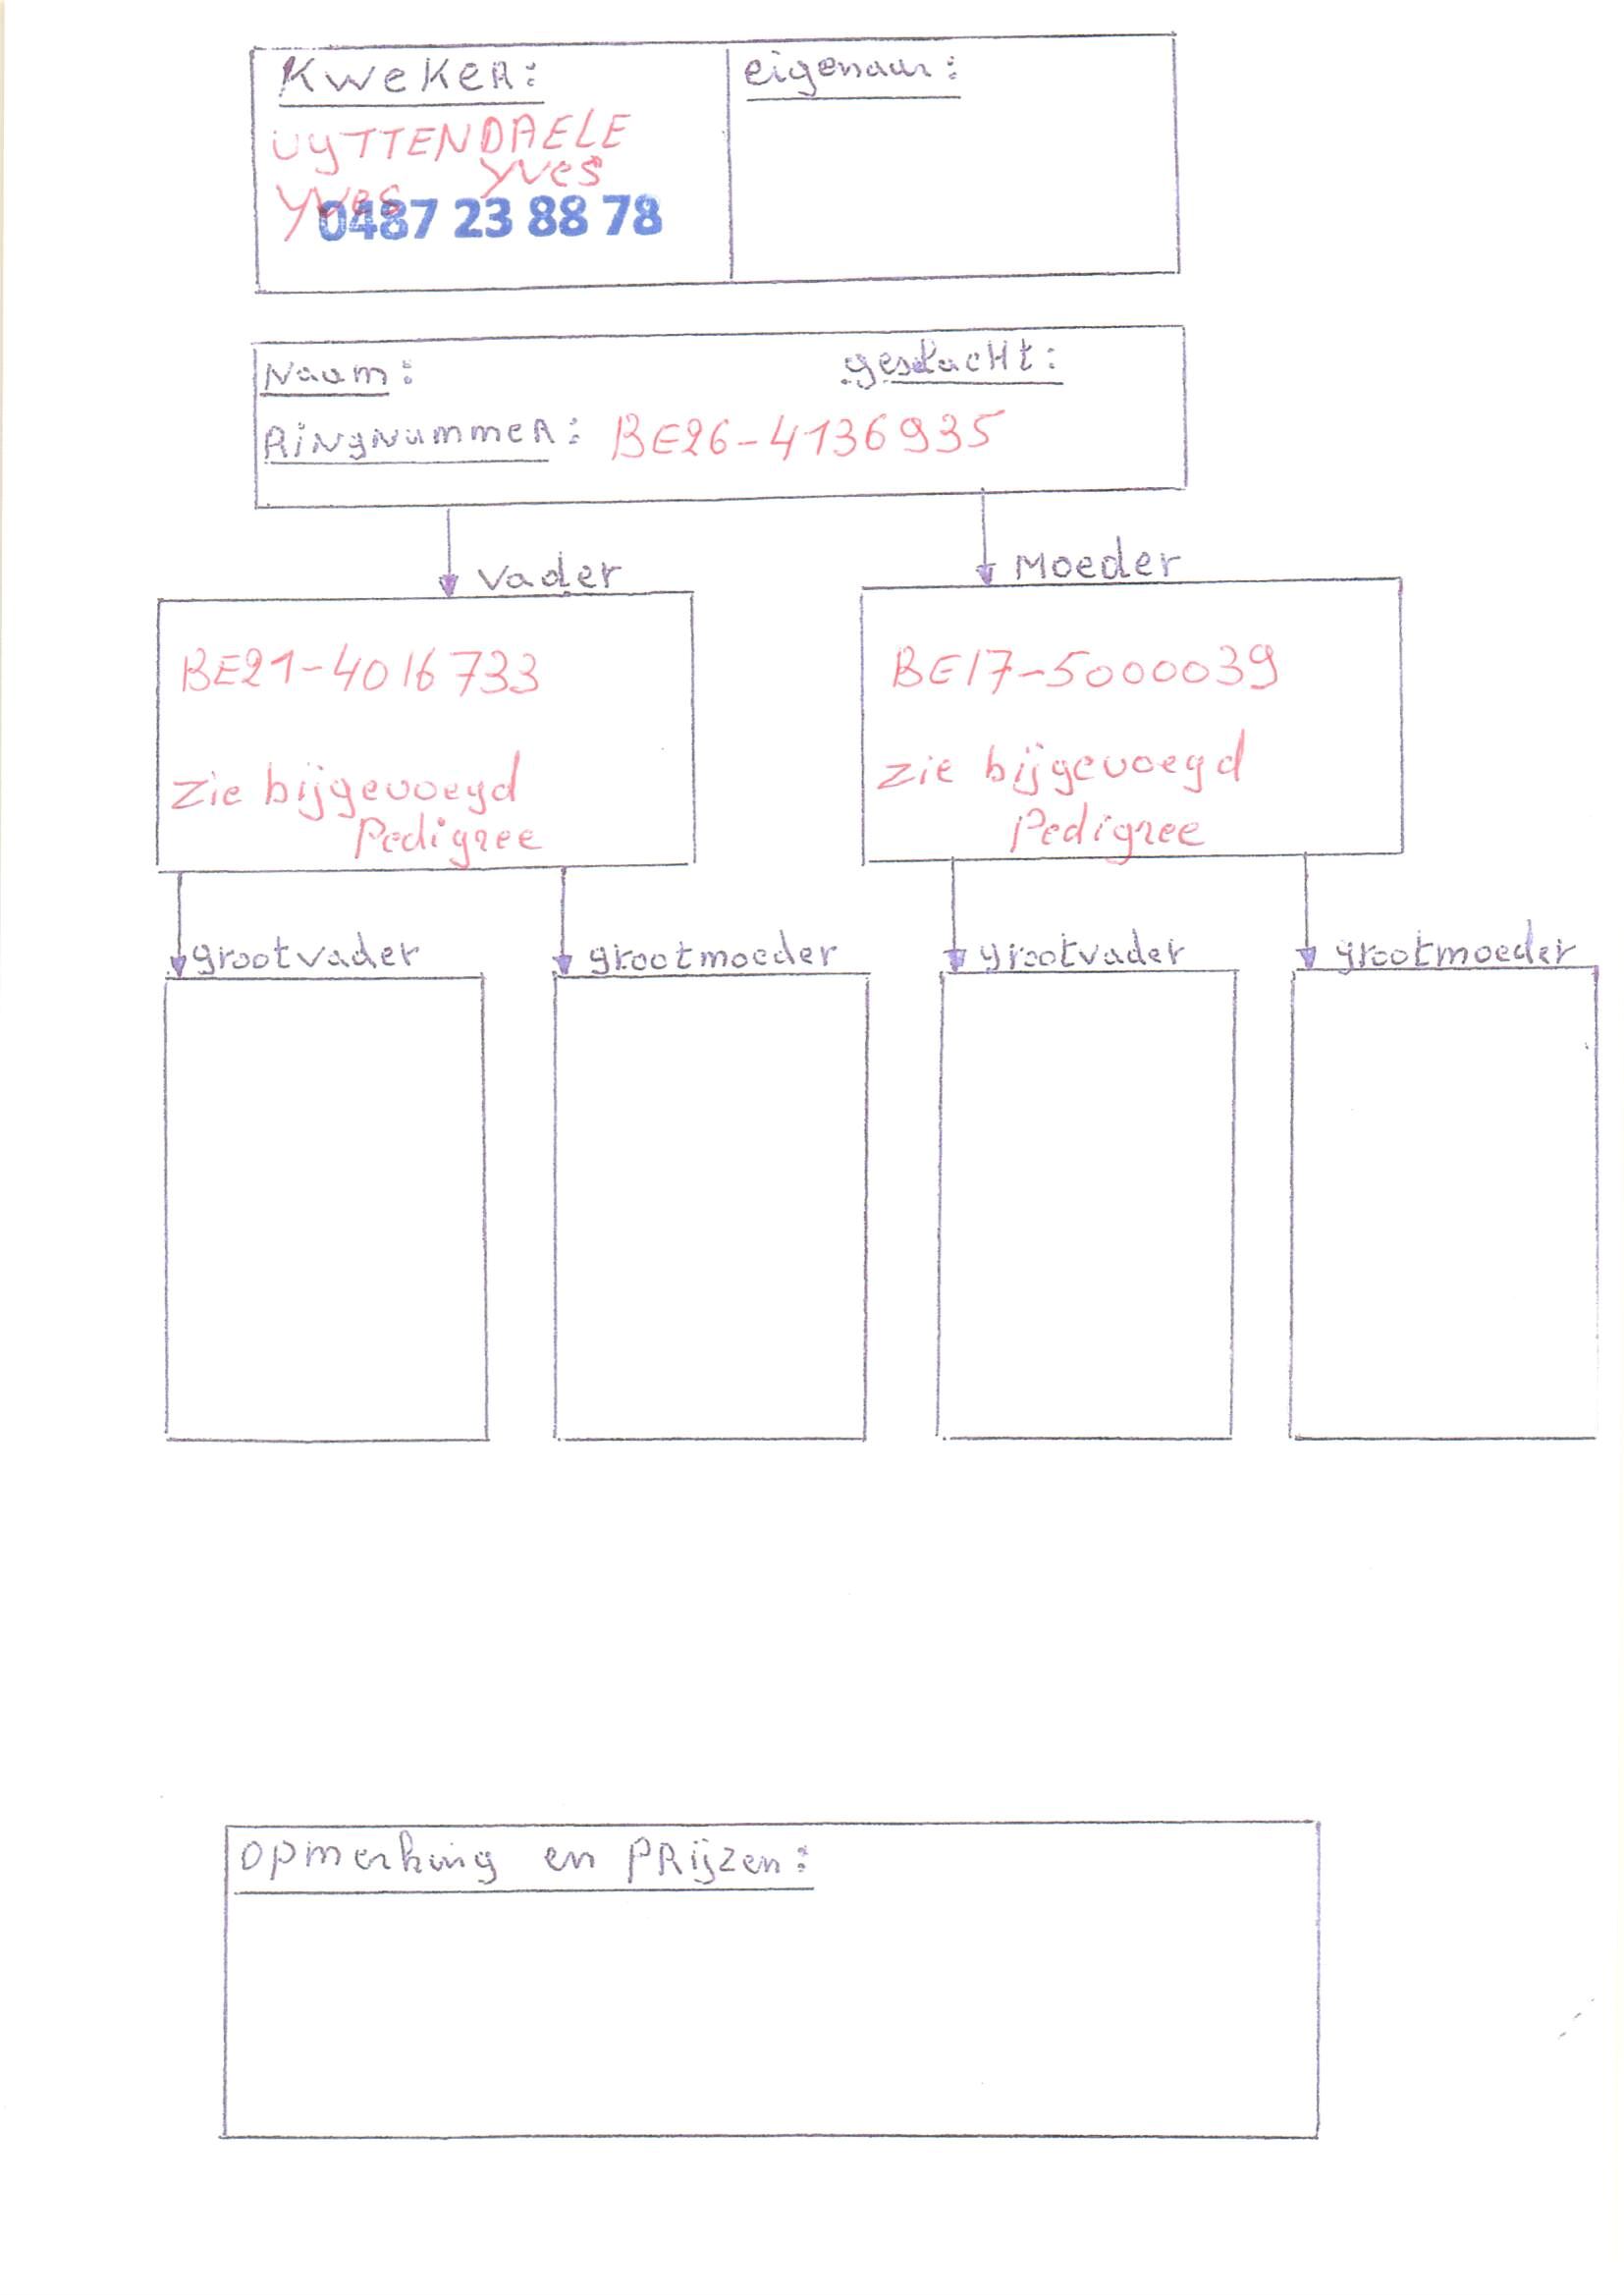 Kweker:
eigenaar:
UYTTENDAELE
Yves
Yves
0487 23 88 78
Naam:
geslacht:
Ringnummer: BE26-4136935
Vader
Moeder
BE21-4016733
BE17-5000039
Zie bijgevoegd
Pedigree
Zie bijgevoegd
Pedigree
grootvader
grootmoeder
grootvader
grootmoeder
Opmerking en PRijzen: